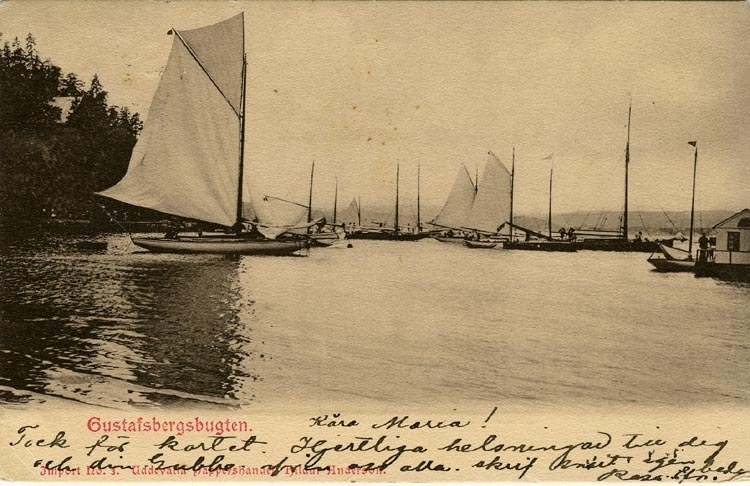 Gustafsbergsbugten.
Kära Maria!
Tack för kortet. Hjertliga helsningar till dig
och din Gubbe från oss alla. skrif snart igen
Import No. 3. Uddevalla Pappershandel Hildur Anderson.